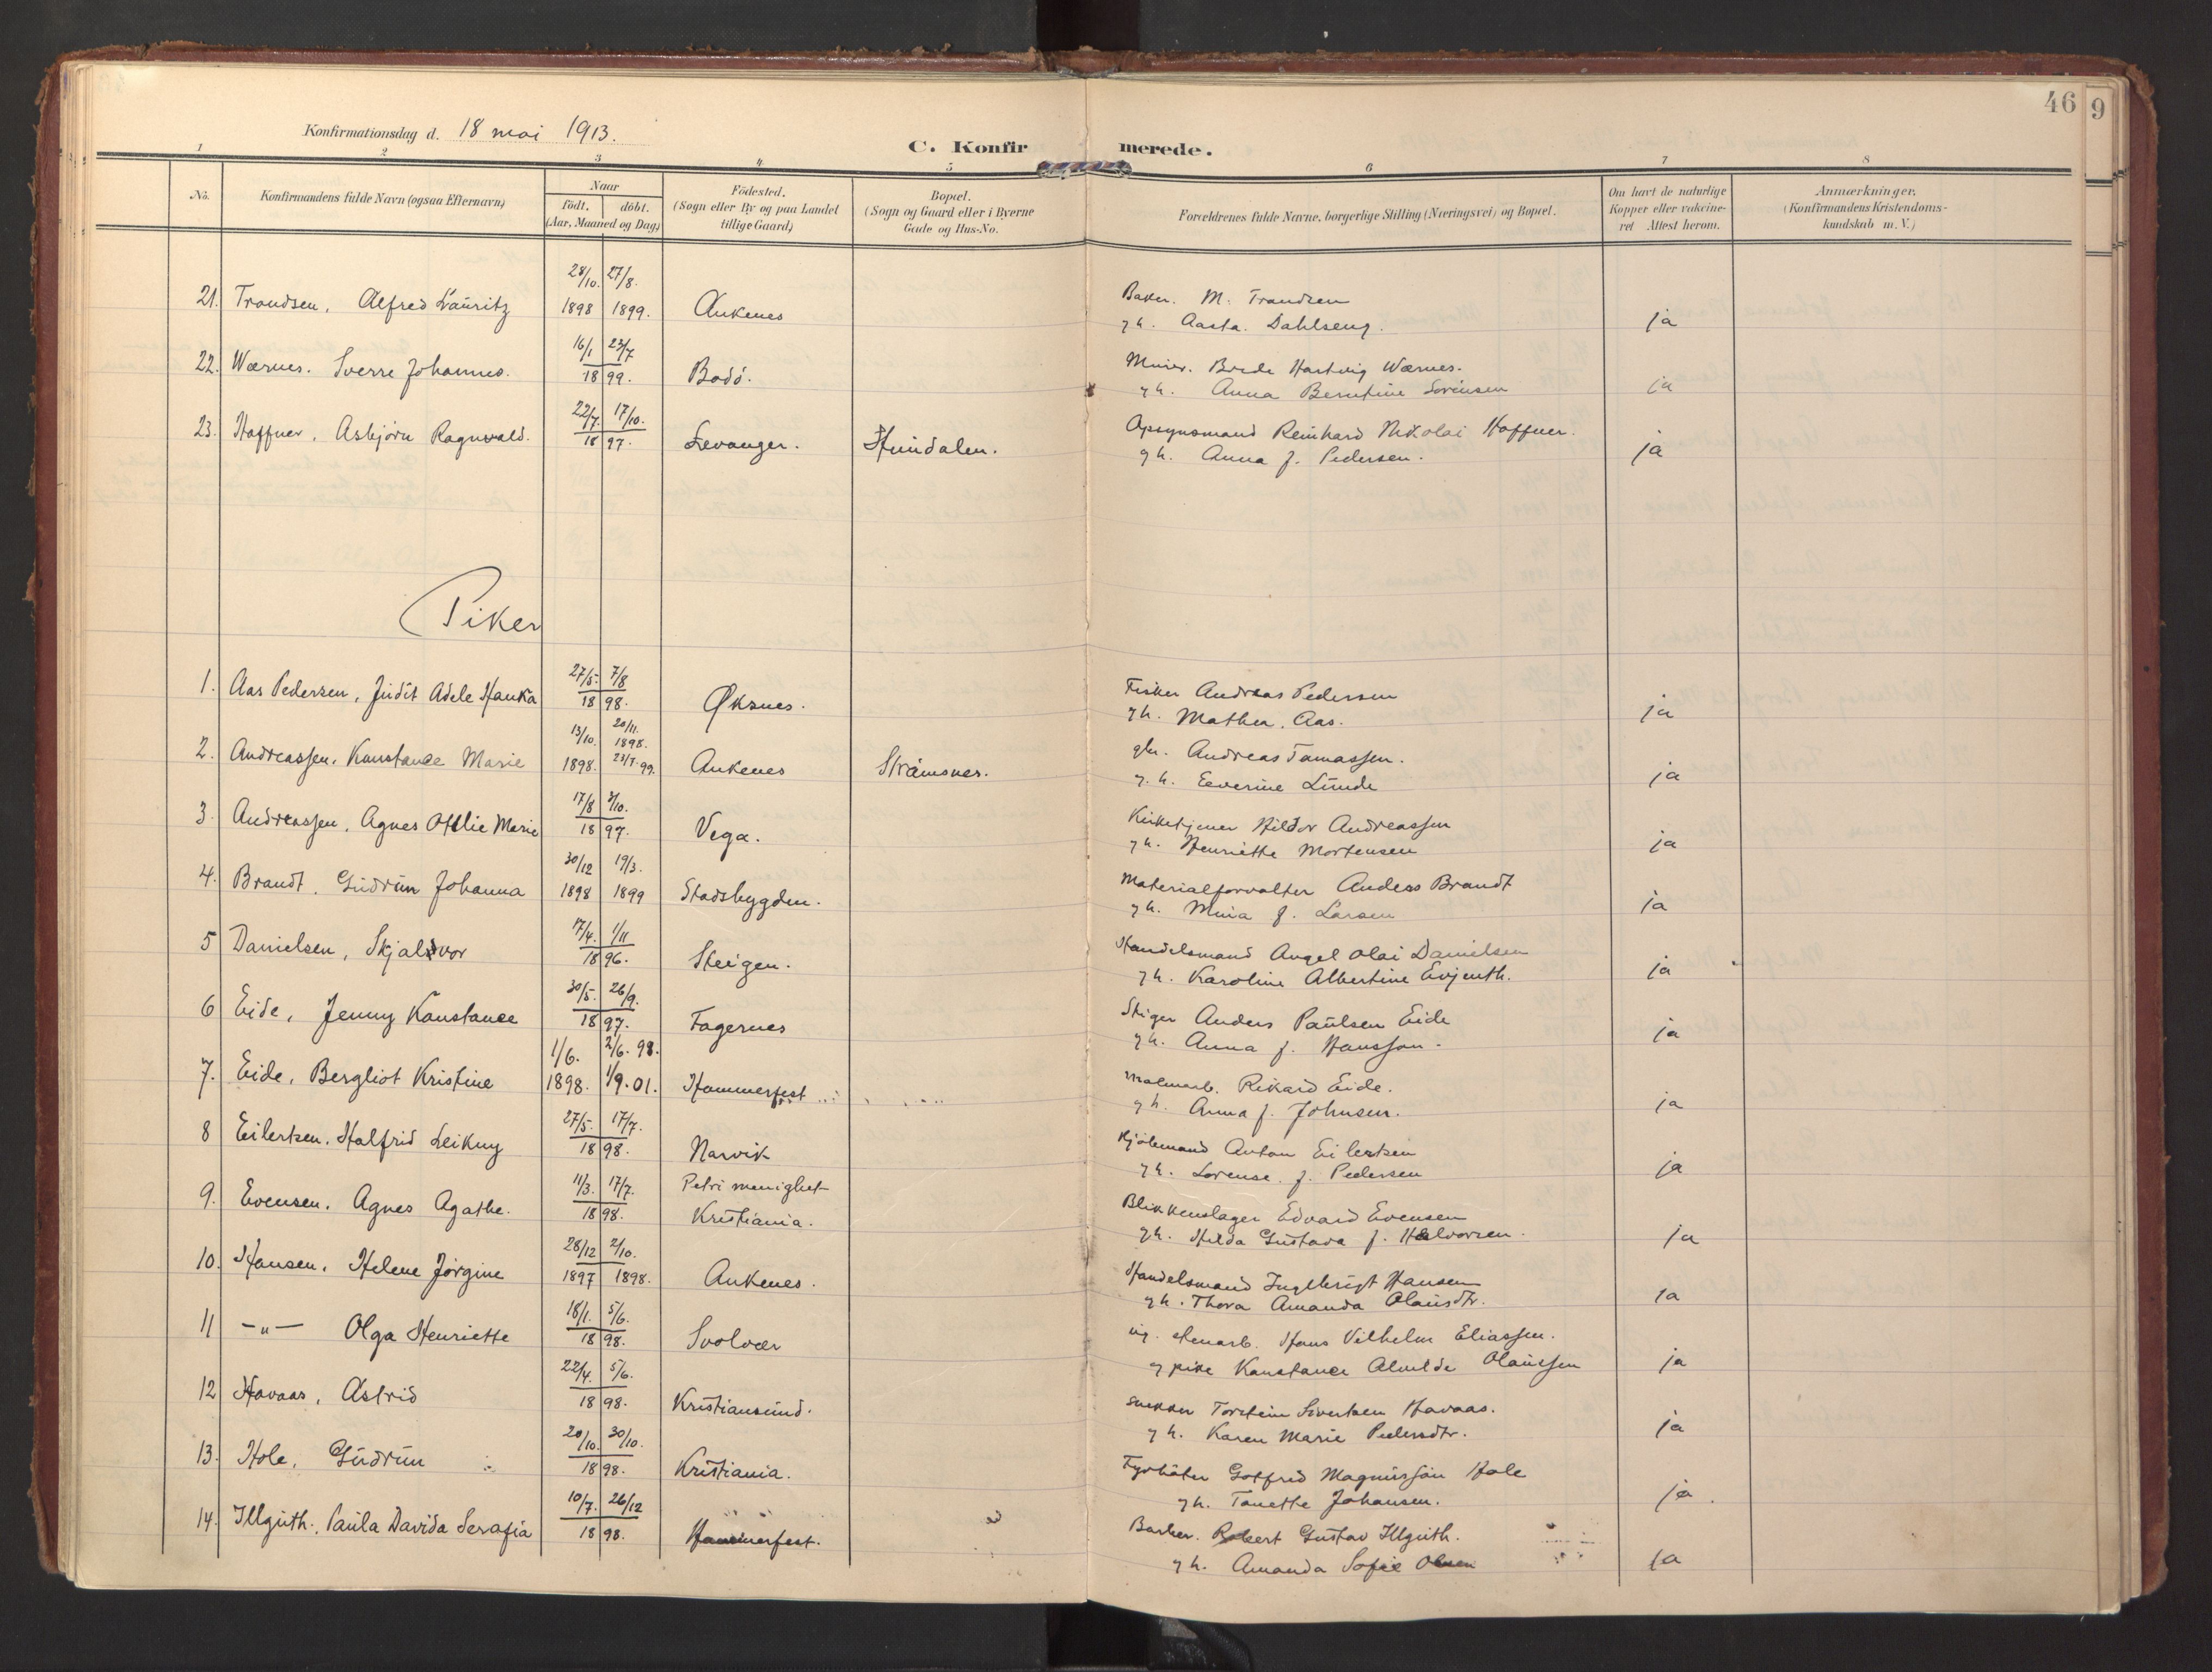 46
9
Konfirmationsdag d. 18 mai 1913.
C. Konfirmerede.
1 2 3 4 5 6 7 8
No.
Konfirmandens fulde Navn (ogsaa Efternavn)
Naar
födt. döbt.
(Aar, Maaned og Dag)
Födested.
(Sogn eller By og paa Landet
tillige Gaard)
Bopæl.
(Sogn og Gaard eller i Byerne
Gade og Hus-No.
Forældrenes fulde Navne, borgerlige Stilling (Næringsvei) og Bopæl.
Om havt de naturlige
Kopper eller vakcine-
ret Attest herom.
Anmærkninger.
(Konfirmandens Kristendoms-
kundskab m. V.)
28/10. 27/8.
21. Trondsen, Alfred Lauritz 1898 1899. Ankenes
Baker. M. Trondsen
g h. Aasta. Dahlseng. ja
16/1 23/7
22. Wærnes. Sverre Johannes. 1899. Bodö.
Minør. Brede Hartvig Wærnes.
g h. Anna Berntine Sörensen ja
22/7. 17/10.
23. Haffner, Asbjörn Ragnvald. 1897. Levanger. Hundalen.
Opsynsmand Reinhard Nikolai Haffner.
g h. Anna f. Pedersen. ja
Piker
27/5. 7/8
1. Aas Pedersen, Judit Adele Hanka 1898. Øksnes.
Fisker Andreas Pedersen
g h. Mathea. Aas. ja
13/10. 20/11. 1898.
2. Andreassen, Konstance Marie 1898. 23/7. 99. Ankenes Strömsnes.
gbr. Andreas Tomassen.
g. h. Eeverine Lunde ja
17/8 3/10.
3. Andreassen, Agnes Ottlie Marie 1897. Vega.
Kirketjener Hildor Andreassen
g h. Henriette Mortensen ja
30/12 19/3.
4. Brandt. Gudrun Johanna 1898 1899 Stadsbygden.
Materialforvalter Anders Brandt
g h. Mina f. Larsen ja
17/4. 1/11
5 Danielsen, Skjaldvor 1896. Steigen.
Handelsmand Angel Olai Danielsen
g h. Karoline Albertine Evjenth. ja
30/5. 26/9.
6 Eide, Jenny Konstance 1897. Fagernes
Stiger Anders Paulsen Eide
g h. Anna f. Hansson. ja
1/6. 2/6. 98.
7. Eide, Bergliot Kristine 1898. 1/9. 01. Hammerfest
Malmarb. Rikard Eide.
g h. Anna f. Johnsen. ja
27/5. 17/7.
8 Eilertsen. Halfrid Leikny 1898. Narvik
Kjölemand Anton Eilertsen
g h. Lorense. f. Pedersen ja
11/3. 17/7. Petri menighet
9. Evensen. Agnes Agathe. 1898. Kristiania.
Blikkenslager Edvard Evensen
g h. Hilda Gustava f. Halvorsen. ja
28/12 2/10.
10. Hansen, Helene Jörgine 1897 1898. Ankenes.
Handelsmand Ingebrigt Hansen
g h. Thora Amanda Olausdtr. ja
18/1. 5/6.
11 -"- Olga Henriette 1898. Svolvær
ug. stenarb. Hans Vilhelm Eliassen.
g pike Konstance Alvilde Olaussen ja
22/4. 5/6.
12 Havaas, Astrid 1898. Kristiansund.
snekker Torstein Sivertsen Havaas.
g h. Karen Marie Pedersdtr. ja
20/10. 30/10.
13. Hole, Gudrun 1898. Kristiania.
Fyrböter Gotfred Magnusson Hole
g h. Tonette Johansen. ja
10/7. 26/12
14. Illguth. Paula Davida Serafia 1898. Hammerfest.
Barber. Robert Gustav Illguth.
g h. Amanda Sofie Olsen ja